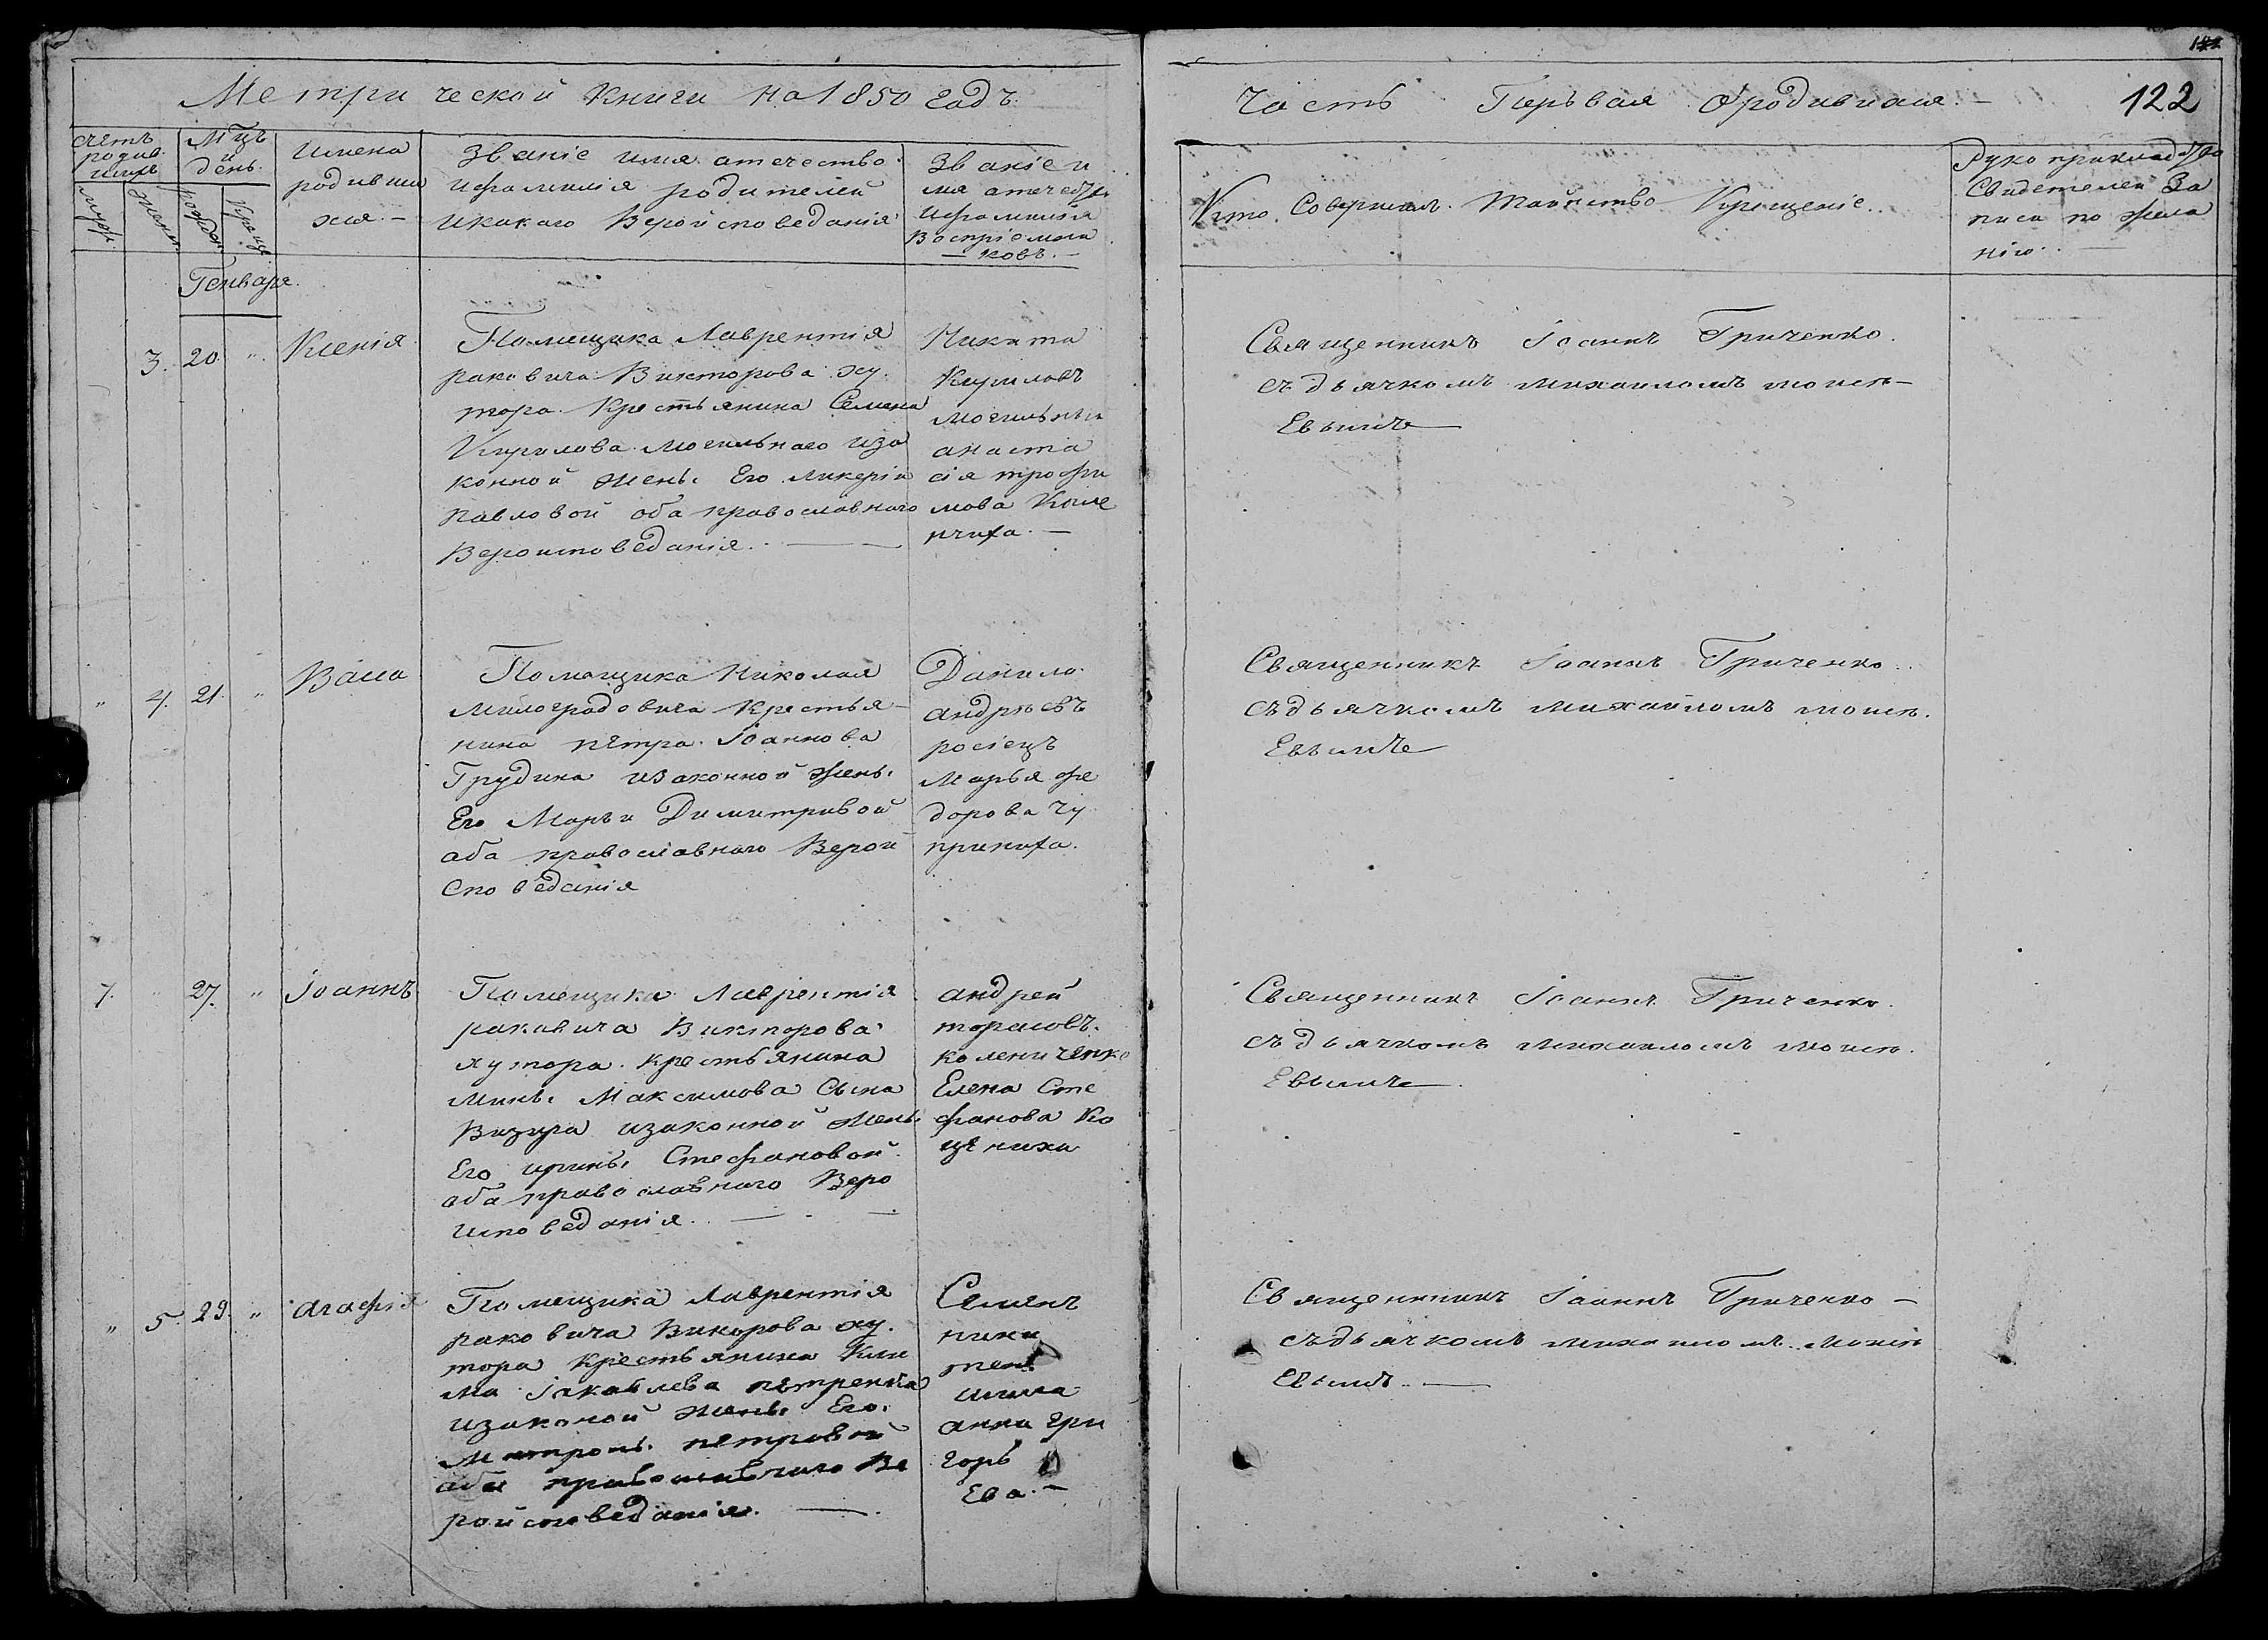 Метрической Книги на 1850 Годъ.
Часть Перьвая Ородившихся. 122
счетъ родив. шихъ
Мцъ и день
Имена родивши хся.
Званіе имя отечество
ифамилія родителей
икакаго Веройсповеданія
Званіе и
мя отечество
ифамилія
Воспріемни
ковъ.
Кто Совершал Таинство Крещеніе
Рукоприкладство
Свидетелей За
писи по жела
нію
муж. женс. рожден. Креще.
Генваря
3. 20. " Ксенія
Помещика Лаврентія
раковича Викторова ху
тора Крестьянина Семена
Кирилова могильнаго иза
конной жены Его Ликеріи
Павловой оба православнаго
Вероисповеданія.
Никита
Кириловъ
могильный
анаста
сія трофи
мова Коле
нчиха.
Священникъ Іоаннъ Гриченко.
съ дьячкомъ михаиломъ моисѣ-
Евымъ
" 4. 21. " Васса
Помещика Николая
милоградовича крестья-
нина петра Іоаннова
Грудина изаконной жены
Его Марьи Димитривой
оба православнаго Верои
споведанія
Данило
андрѣевъ
росіецъ
Марья фе
дорова чу
приниха.
Священникъ Іоаннъ Гриченко.
съдьячкомъ михайломъ моисѣ.
Евымъ
7. " 27. " Іоаннъ
Помещика Лаврентія
раковича Викторова
хутора крестьянина
мины Максимова Сына
Визира изаконной жены
Его ирины Стефановой
оба православнаго Веро
исповеданія.
андрей
торасовъ.
колениченко
Елена Сте
фанова Ко
цѣниха
Священникъ Іоаннъ Гриченко.
съдьячкомъ михаиломъ моисѣ.
Евымъ
" 5. 29. " агафія
Помещика Лаврентія
раковича Викторова ху.
тора крестьянина Кли
ма Іаковлева петренка
изаконой жены Его.
Матроны петровой
оба православнаго Ве
ройсповеданія.
Семенъ
ники
тен
шила
анна гри
горь
Ева.
Священникъ Іоаннъ Гриченко -
съдьячкомъ михаиломъ моисѣ
Евымъ.